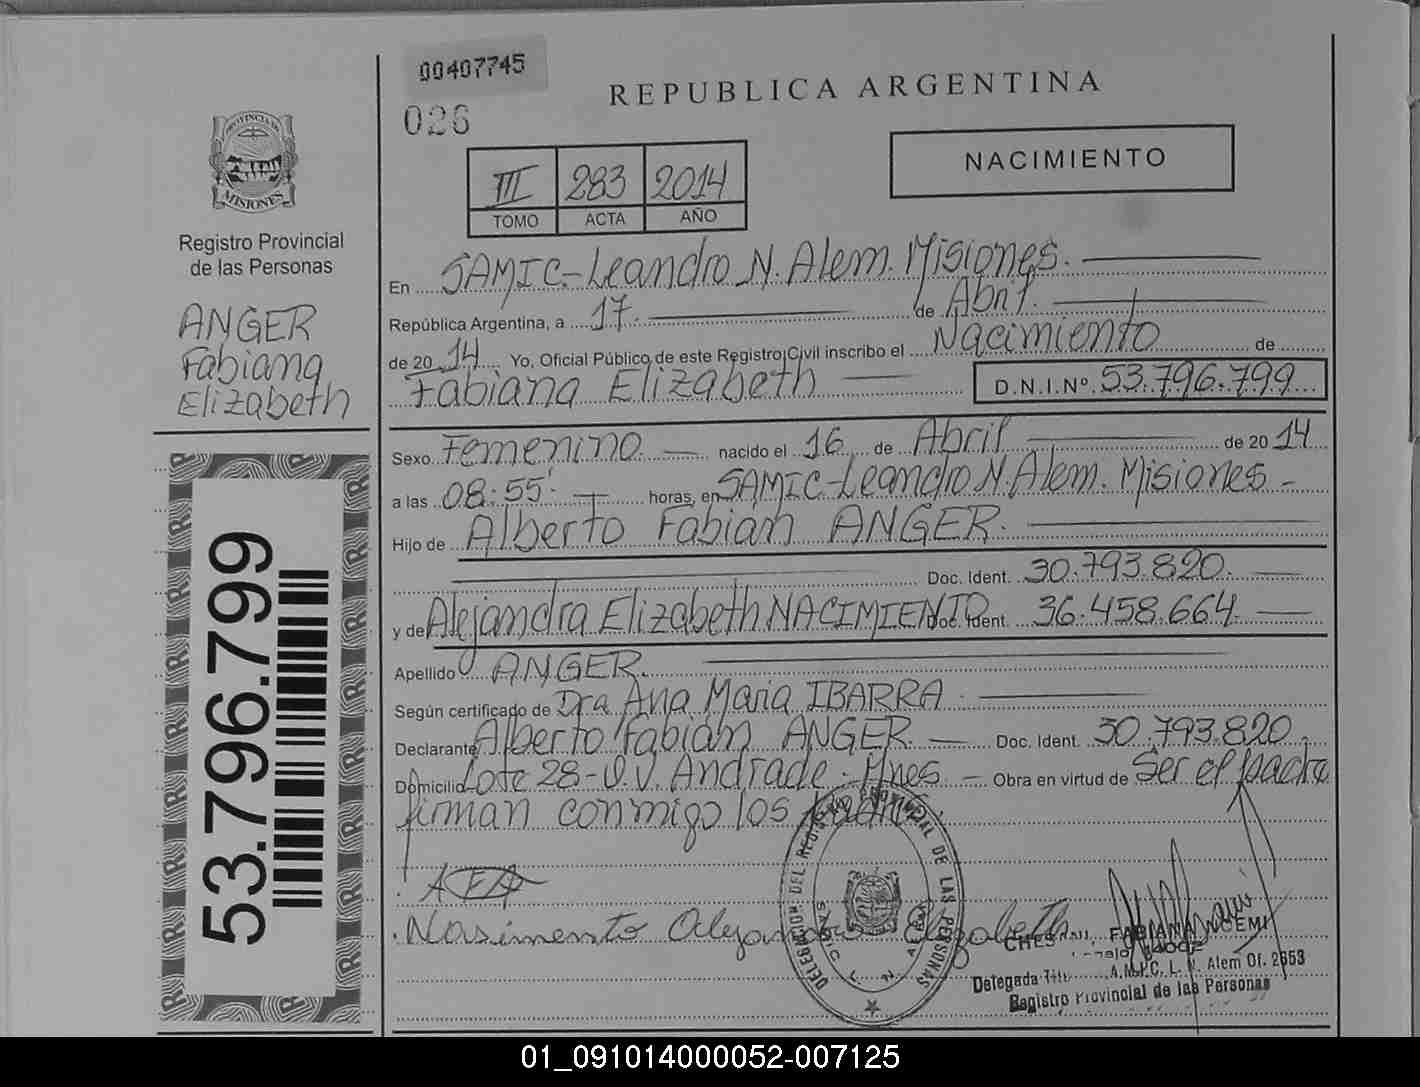 00407745
026
REPUBLICA ARGENTINA
PROVINCIA DE
MISIONES
Registro Provincial
de las Personas
ANGER
Fabiana
Elizabeth
53.796.799
III 283 2014
TOMO ACTA AÑO
NACIMIENTO
En SAMIC-Leandro N. Alem. Misiones.
República Argentina, a 17. de Abril.
de 20 14 Yo, Oficial Público de este Registro Civil inscribo el Nacimiento de
Fabiana Elizabeth D.N.I.Nº 53.796.799
Sexo Femenino nacido el 16 de Abril de 20 14
a las 08:55' horas, en SAMIC-Leandro N. Alem. Misiones -
Hijo de Alberto Fabián ANGER.
Doc. Ident. 30.793.820.
y de Alejandra Elizabeth NACIMIENTO Doc. Ident. 36.458.664.
Apellido ANGER.
Según certificado de Dra Ana Maria IBARRA
Declarante Alberto Fabián ANGER. Doc. Ident. 30.793.820.
Domicilio Lote 28-O.V. Andrade. Mnes. Obra en virtud de Ser el padre
firman conmigo los
AFA
Nasimento Alejandra Elizabeth
DELEGACION DEL REGISTRO PROVINCIAL DE LAS PERSONAS
SAMIC L. N. ALEM
FABIANA NOEMI
Delegada Tit. A.M.I.C. L. N. Alem Of. 2653
Registro Provincial de las Personas
01_091014000052-007125